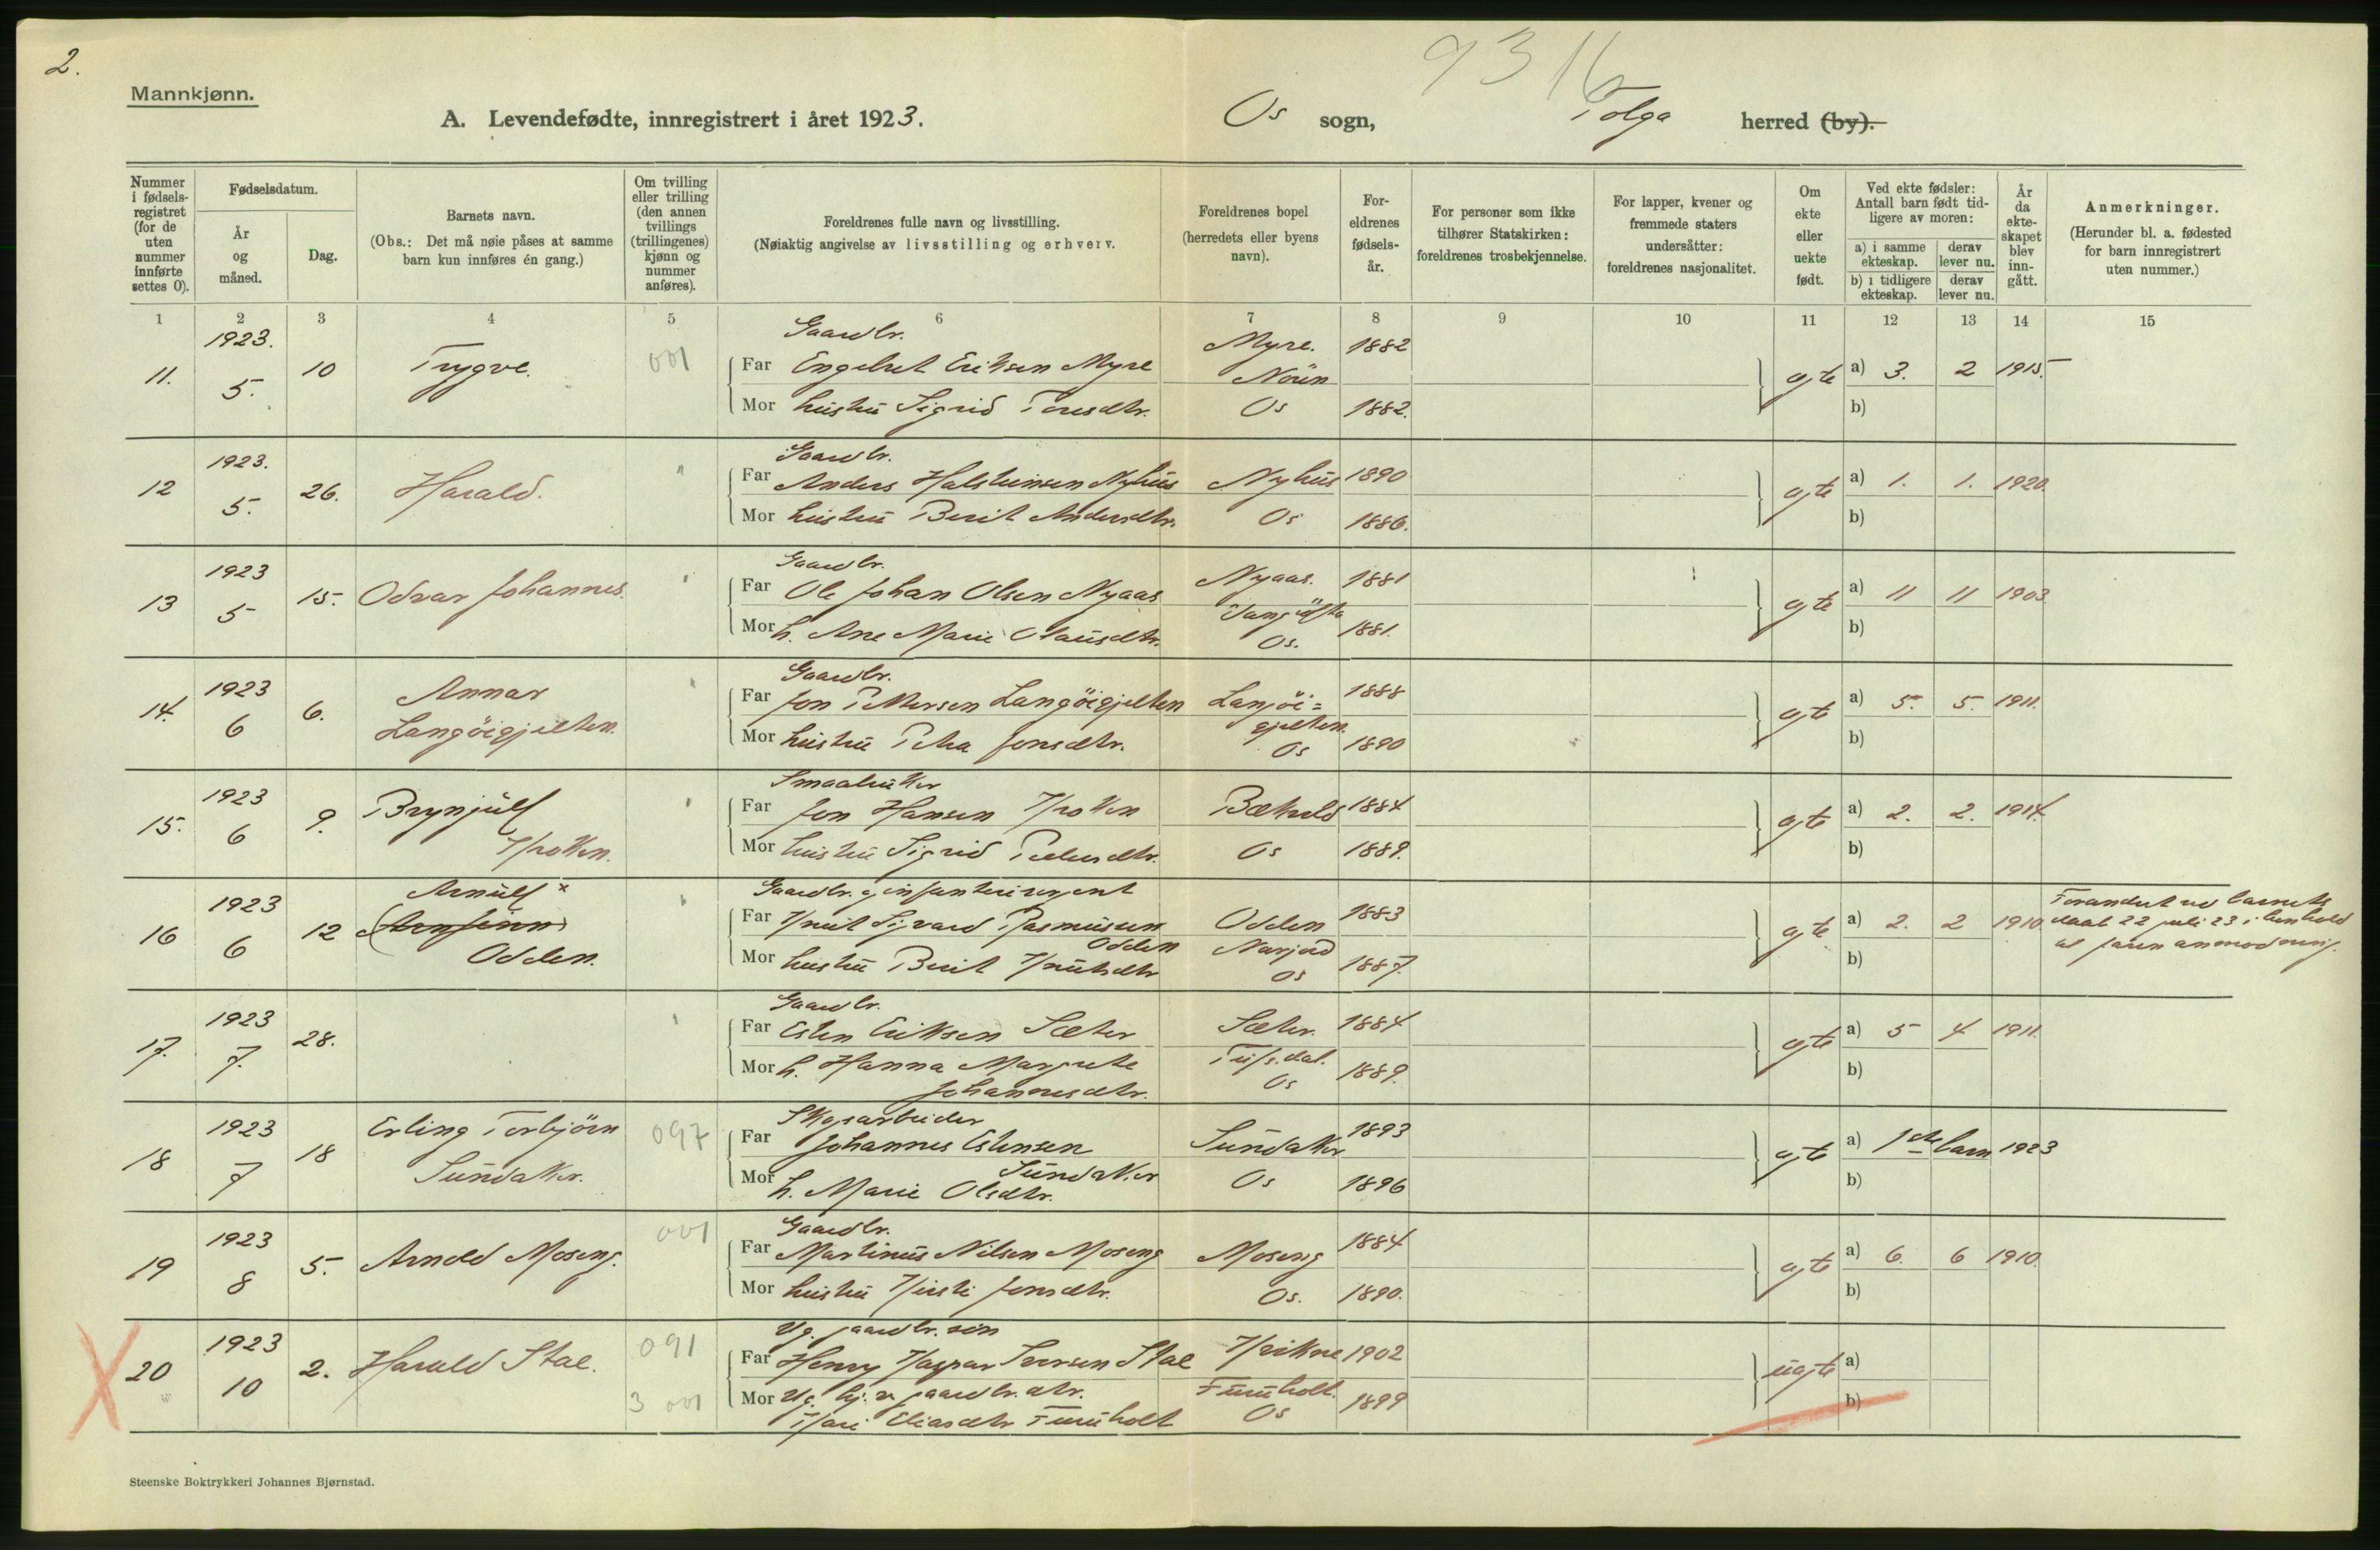 2.
9316
Mannkjønn.
A. Levendefødte, innregistrert i året 1923.
Os sogn, Tolga herred (by).
Nummer i fødsels-registret (for de uten nummer innførte settes 0).
Fødselsdatum.
År og måned.
Dag.
Barnets navn.
(Obs.: Det må nøie påses at samme barn kun innføres én gang.)
Om tvilling eller trilling (den annen tvillings (trillingenes) kjønn og nummer anføres).
Foreldrenes fulle navn og livsstilling.
(Nøiaktig angivelse av livsstilling og erhverv.
Foreldrenes bopel (herredets eller byens navn).
For-eldrenes fødsels-år.
For personer som ikke tilhører Statskirken: foreldrenes trosbekjennelse.
For lapper, kvener og fremmede staters undersåtter: foreldrenes nasjonalitet.
Om ekte eller uekte født.
Ved ekte fødsler: Antall barn født tid-ligere av moren:
a) i samme ekteskap. derav lever nu.
b) i tidligere ekteskap. derav lever nu.
År da ekte-skapet blev inn-gått.
Anmerkninger.
(Herunder bl. a. fødested for barn innregistrert uten nummer.)
1 2 3 4 5 6 7 8 9 10 11 12 13 14 15
Gaardbr.
11. 1923. 5. 10 Trygve. 001 Far Engebret Eriksen Myre Myre. 1882 Nören
Mor hustru Sigrid Toresdtr. Os 1882. egte a) 3. 2 1915.
b)
Gaardbr.
12 1923. 5. 26. Harald. " Far Anders Halsteinsen Nyhus Nyhus 1890
Mor hustru Berit Andersdtr. Os 1886. egte a) 1. 1. 1920.
b)
Gaardbr.
13 1923 5 15. Odvar Johannes. Far Ole Johan Olsen Nyaas Nyaas. 1881
Mor h. Ane Marie Olausdtr. Os. 1881. egte a) 11 11 1903.
b)
Gaardbr.
14. 1923 6 6. Annar Langöigjelten. Far Jon Pettersen Langöigjelten Langöi=gjelten. 1888
Mor hustru Petra Jonsdtr. Os 1890 egte a) 5. 5. 1911.
b)
Smaabruker
15. 1923 6 9. Brynjulf Kroken. Far Jon Hansen Kroken Bækvold 1884
Mor hustru Sigrid Pedersdtr. Os 1889. egte a) 2. 2. 1914.
b)
Gaardbr. og infanterisergent
16 1923 6 12 Arnulf x (Arnfinn) Odden. Far Knut Sigvard Rasmussen Odden Odden 1883
Mor hustru Berit Knutsdtr Narjord Os 1887. egte a) 2. 2 1910.
b)
Forandret ved barnets
daab 22 juli 23 i henhold
til faren anmodning.
Gaardbr.
17. 1923 7. 28. Far Esten Eriksen Sæter Sæter. 1884
Mor h. Hanna Margrete Johannesdtr. Tufs.dal. Os 1889. egte a) 5 4 1911.
b)
Skogsarbeider
18 1923 7 18 Erling Torbjörn Sundaker. 097 Far Johannes Estensen Sundaker Sundaker 1893
Mor h. Marie Olsdtr. Os 1896 egte a) 1ste barn 1923
b)
Gaardbr.
19 1923 8 5. Arnold Moseng. 001 Far Martinus Nilsen Moseng Moseng 1884
Mor hustru Kirsti Jonsdtr. Os. 1890. egte a) 6. 6 1910.
b)
Ug. gaardbr. sön
20 1923 10 2. Harald Stai. 091 Far Henry Kaspar Iversen Stai Kvikne 1902
3 001 Mor Ug. hj.v. gaardbr.dtr. Kari Eliasdtr Furuholt Furuholt. Os 1899 uegte a)
b)
Steenske Boktrykkeri Johannes Bjørnstad.